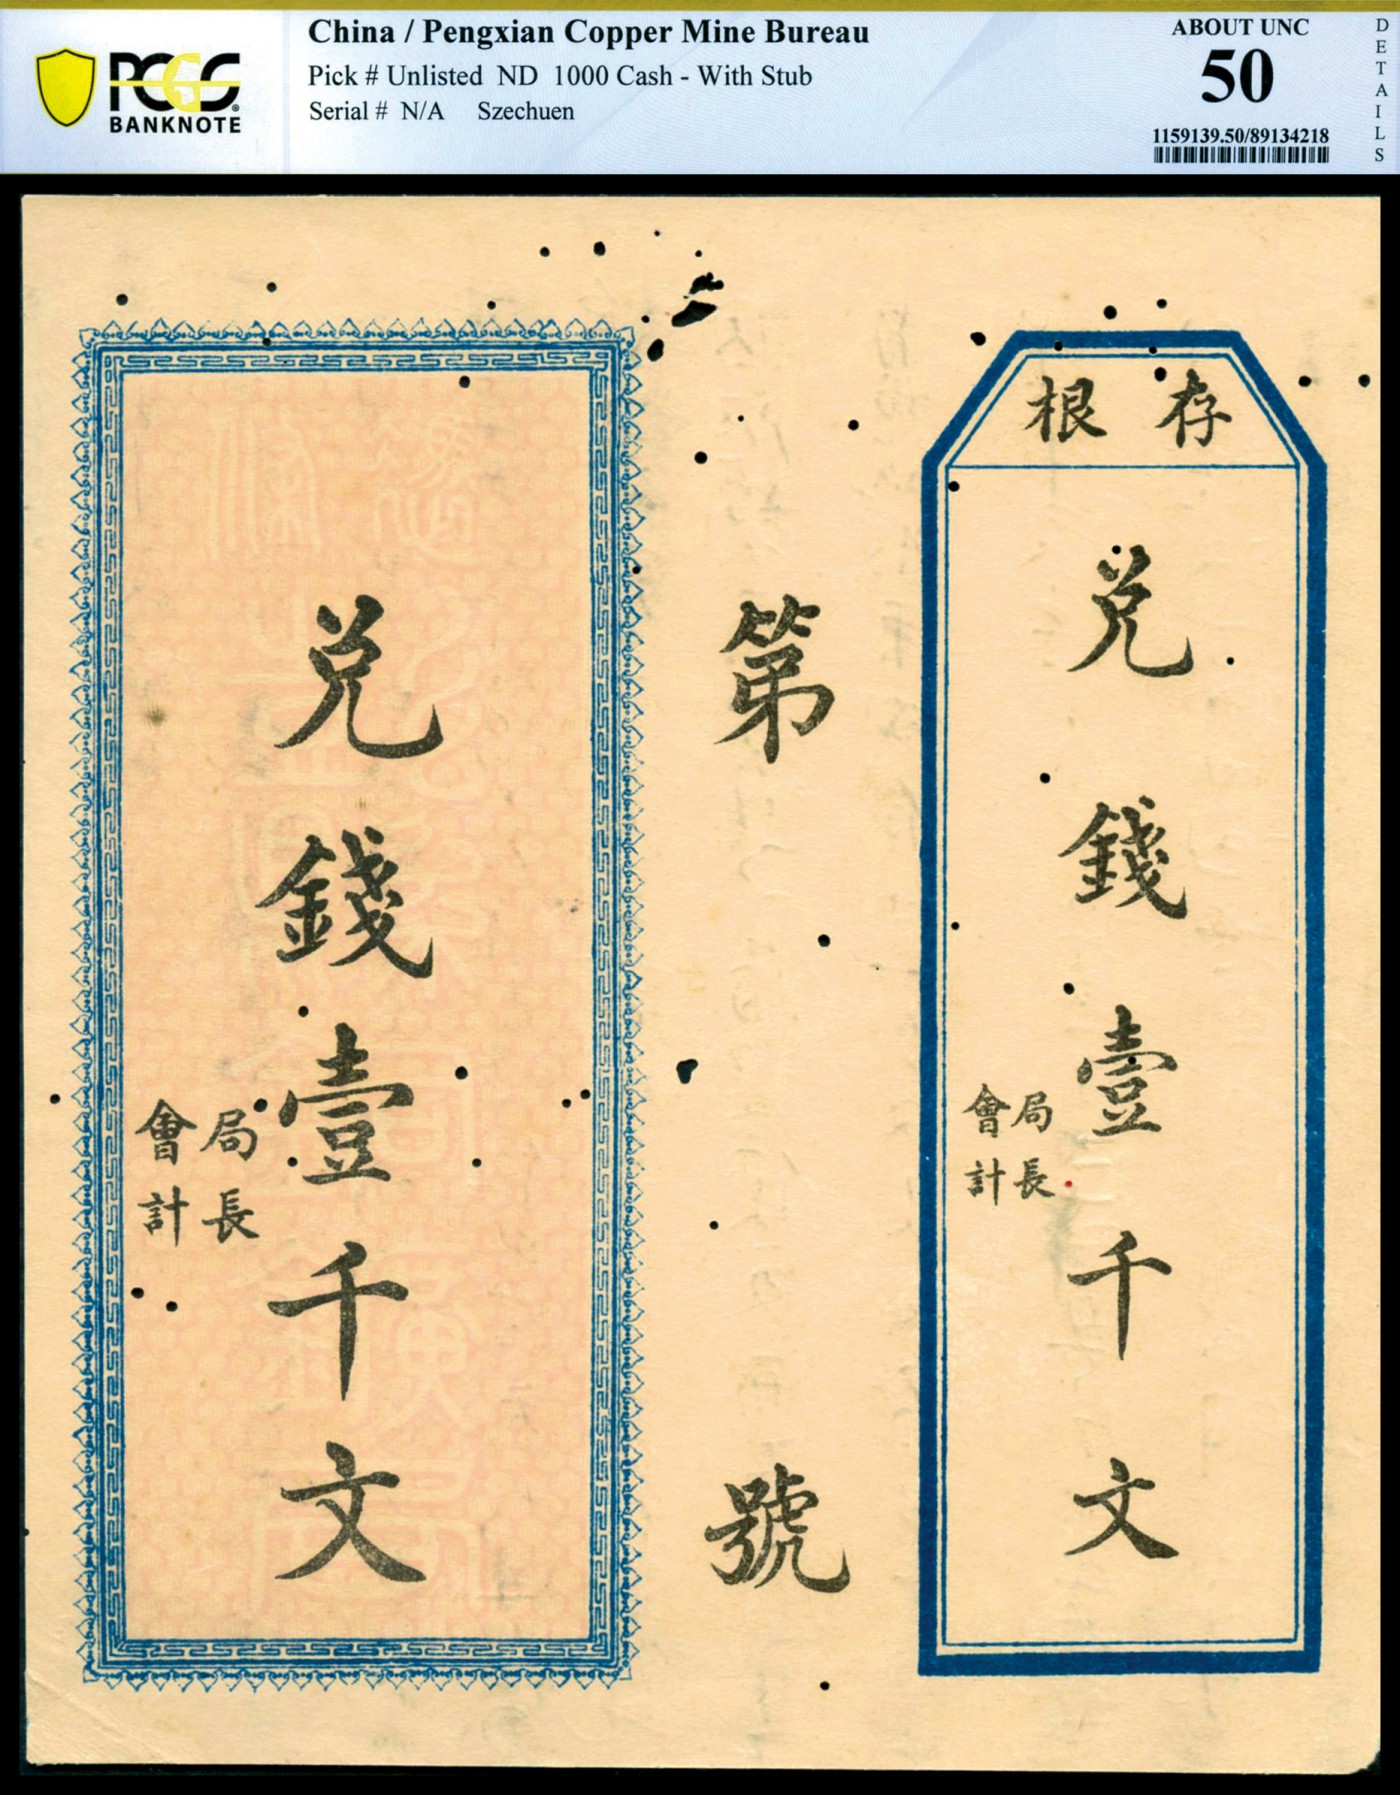 China / Pengxian Copper Mine Bureau
Pick # Unlisted ND 1000 Cash - With Stub
Serial # N/A Szechuen
PCGS
BANKNOTE
ABOUT UNC
50
1159139.50/89134218
DETAILS
存根
兑錢壹千文
局長
會計
第 號
兑錢壹千文
局長
會計